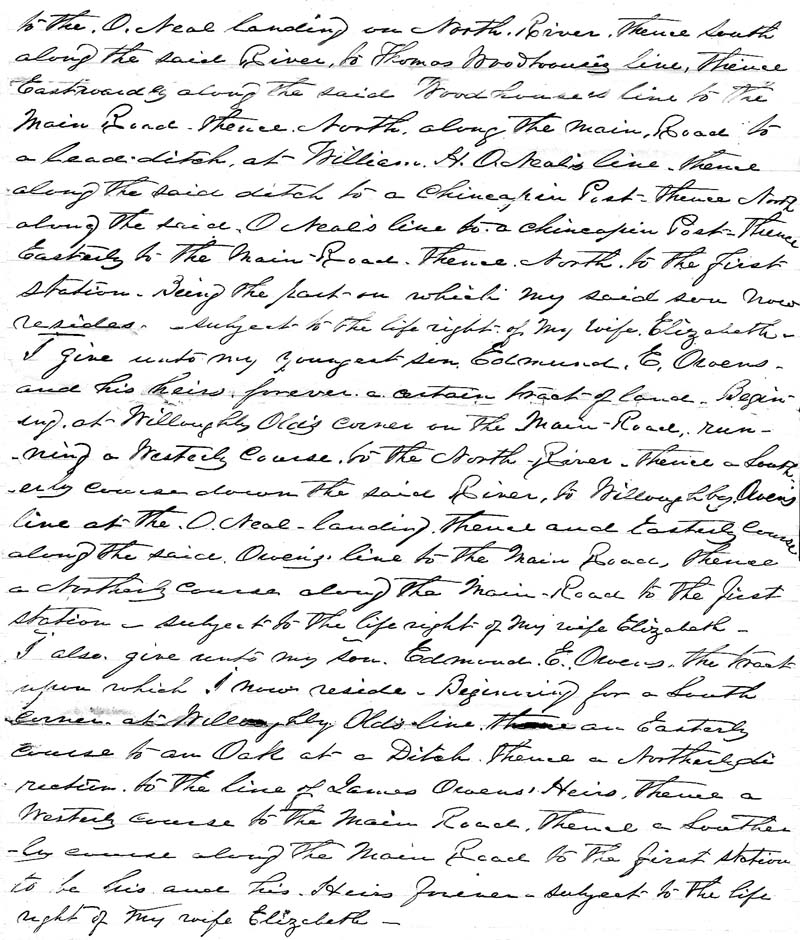 to the. O. Neal landing on North. River. thence south
along the said River, to Thomas Woodhouse's line, thence
Eastwardly along the said Woodhouse's line to the
Main Road - thence. North. along the main, Road to
a lead-ditch, at William. H. O. Neal's line - thence
along the said ditch to a Chincapin Post - thence North
along the said. O Neal's line to a chincapin Post - Thence
Easterly to the Main-Road. thence. North. to the first
station - Being the part on which my said son now
resides. - subject to the life right of my wife. Elizabeth -
I give unto my youngest son Edmund. E. Owens -
and his heirs. forever. a certain tract of land - Begin-
ing. at Willoughby Old's corner on the Main-Road, run-
-ning a Westerly Course. to the North-River - thence a South-
-erly course down the said River, to Willoughby. Owens
line at the. O. Neal-landing. thence and Easterly Course
along the said. Owens' line to the Main Road, thence
a Northerly course along the Main-Road to the first
station - subject to the life right of my wife Elizabeth -
I also. give unto my son. Edmond. E. Owens. the tract
upon which I now reside - Beginning for a South
Corner. at Willoughby Old's line. thence an Easterly
course to an Oak at a Ditch. thence a Northerly di
rection. to the line of James Owens' Heirs, thence a
Westerly course to the Main Road, thence a Souther
-ly course along the Main Road to the first station
to be his and his. Heirs forever - subject to the life
right of my wife Elizabeth -